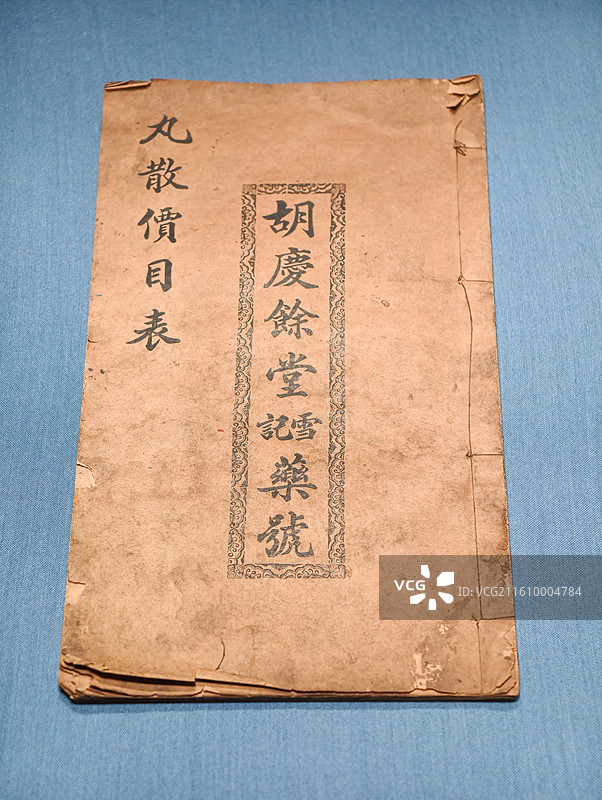 胡慶餘堂雪記藥號
丸散價目表
VCG
VCG.COM
ID: VCG211610004784